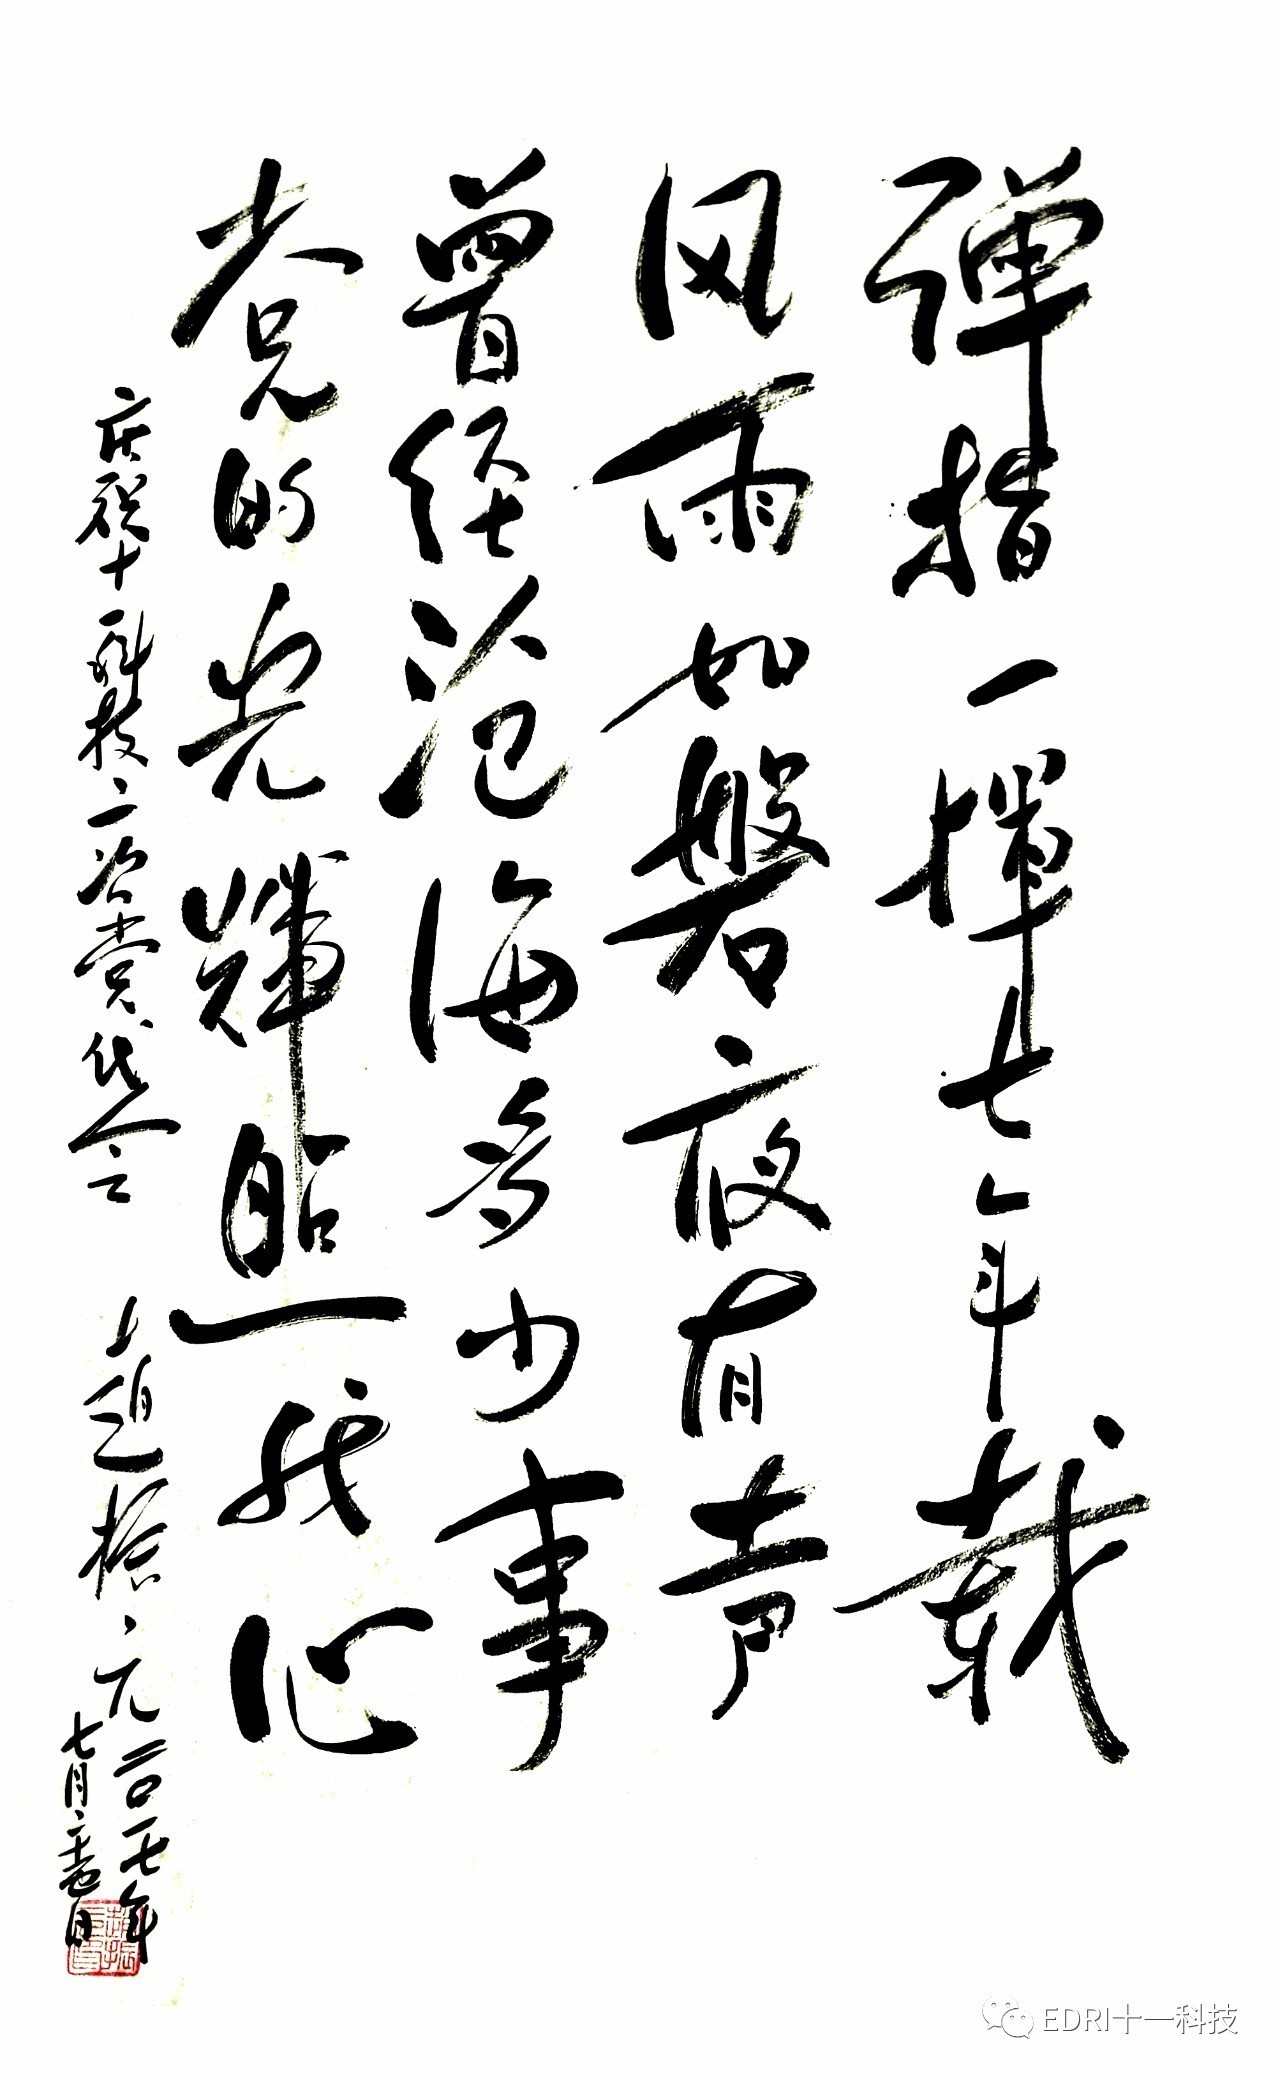 弹指一挥七年载
风雨如磐夜有声
曾经沧海多少事
党的光辉照我心
庆祝十一科技二次党代会 赵振元二〇一七年
七月二十壹日
EDRI十一科技